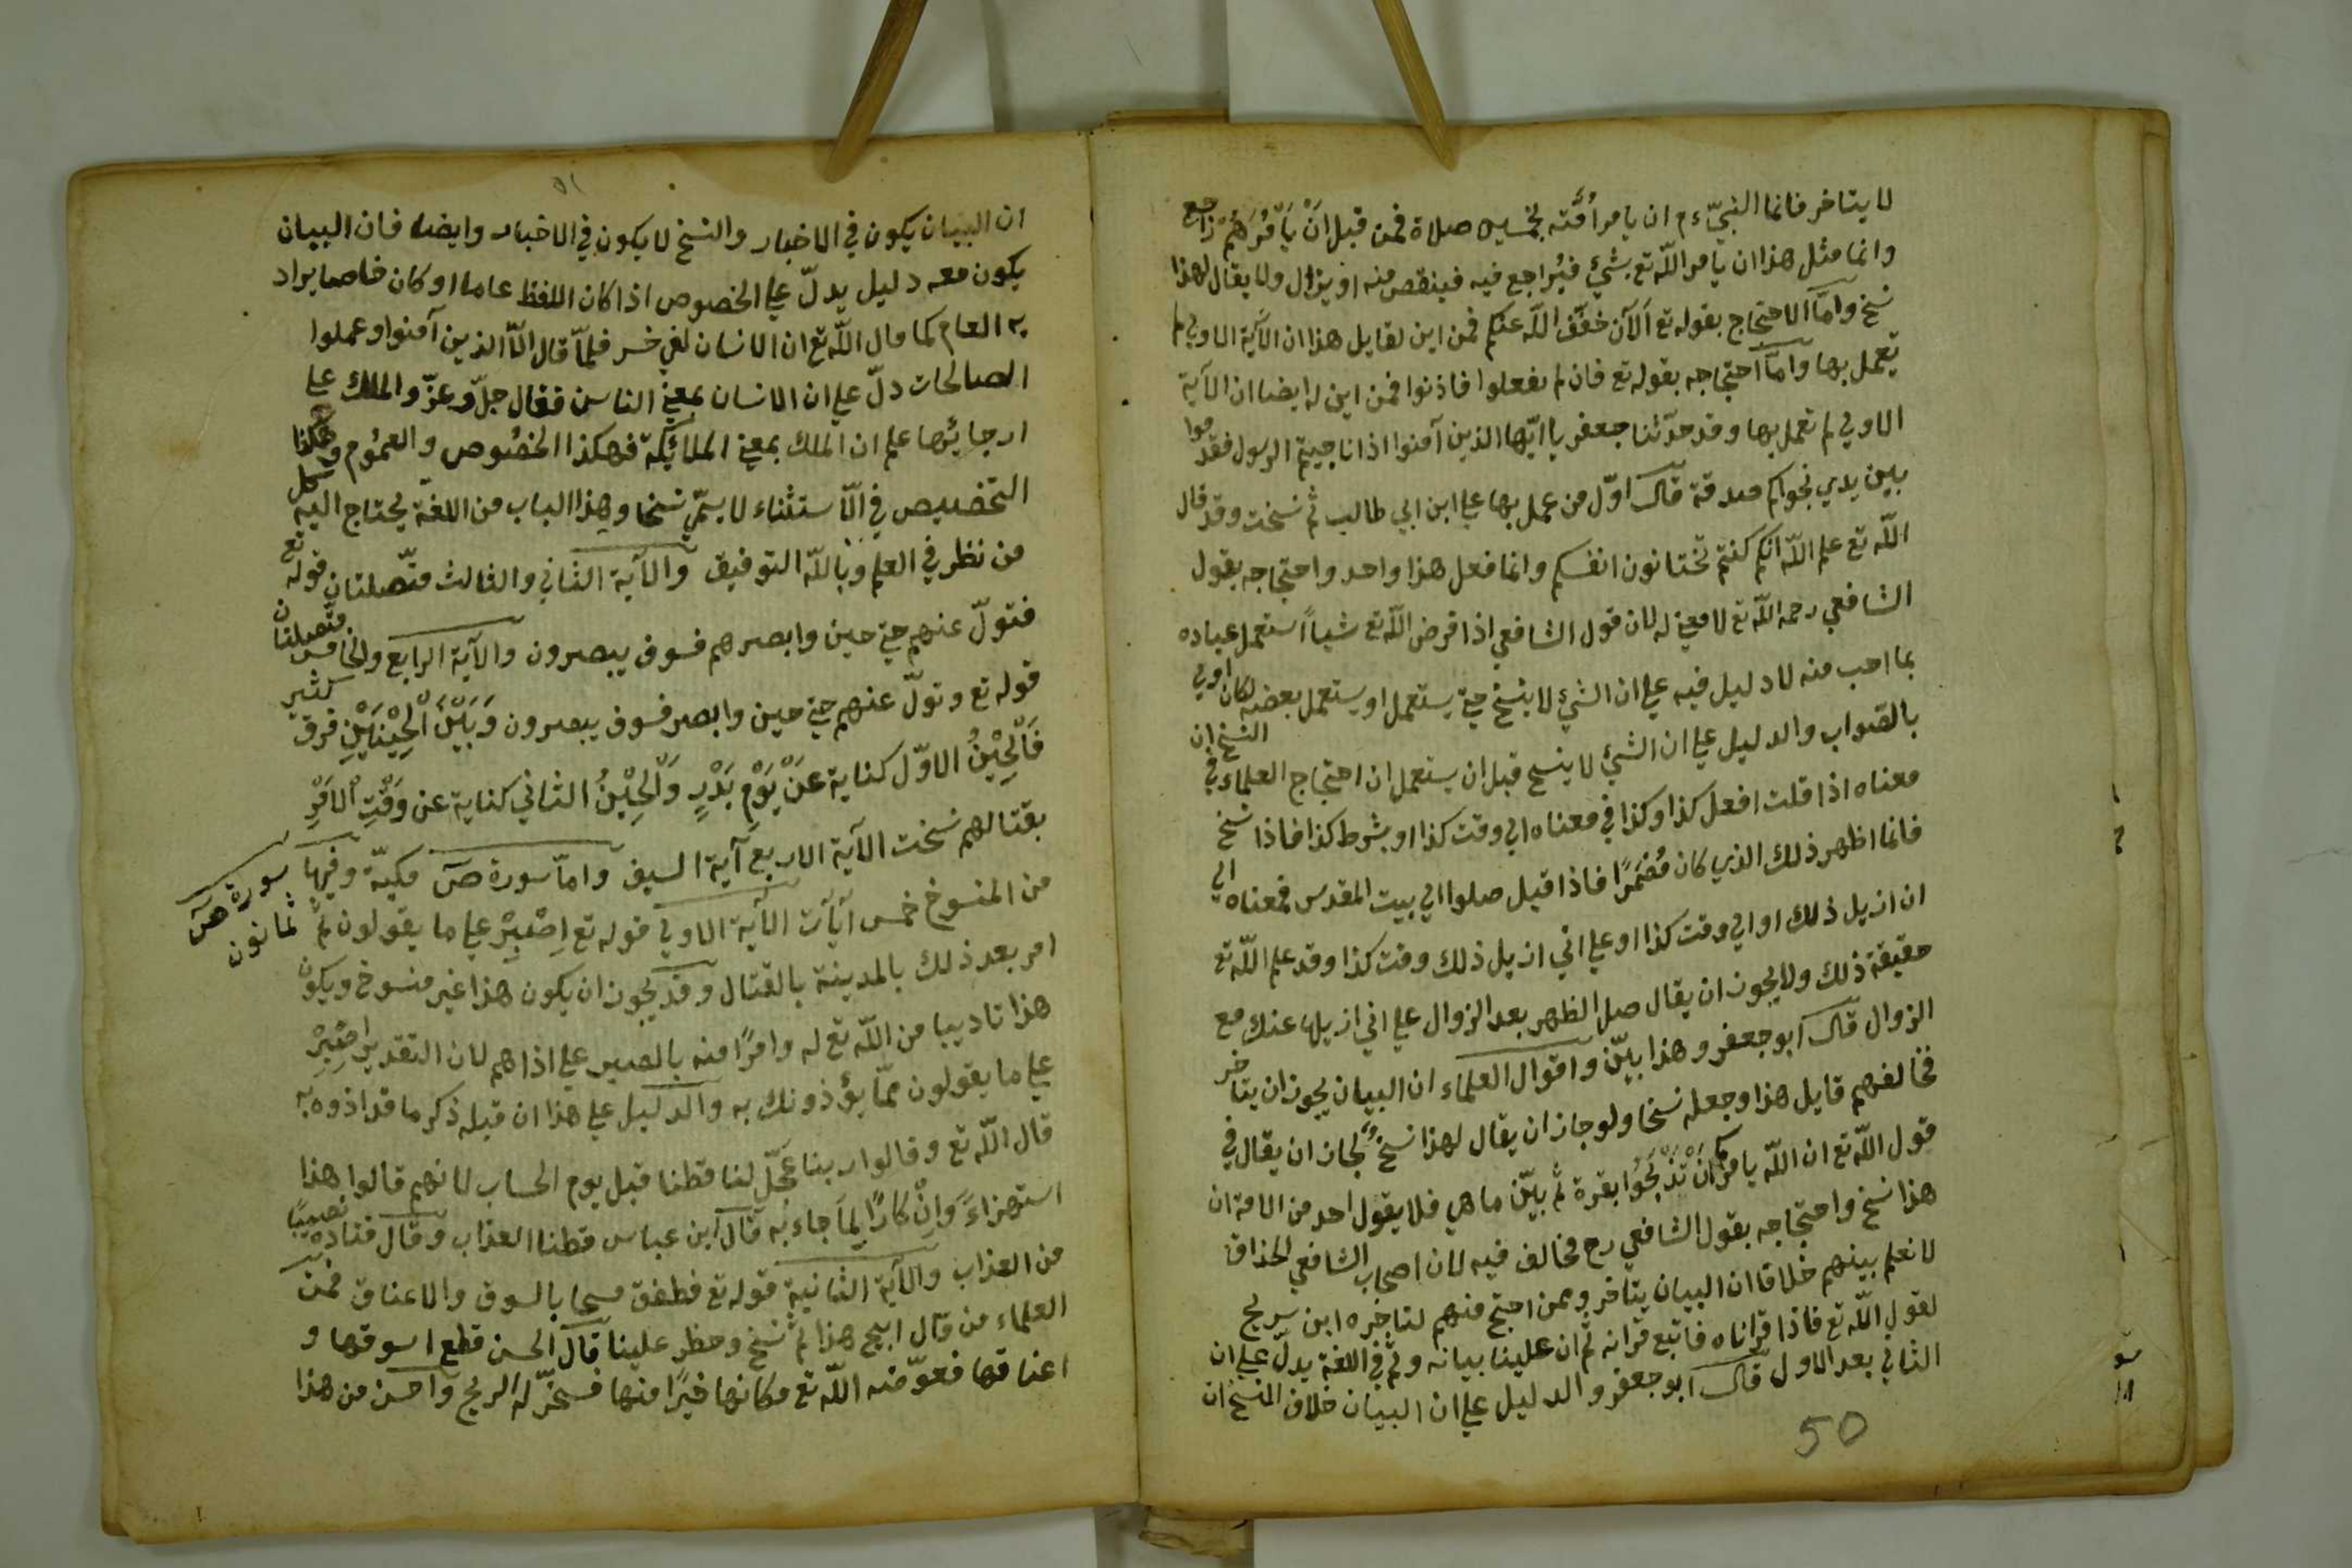 لا يتاخر فانما النبيّ ءم ان يامر اُمَّته بخمسين صلاة فمن قبل انْ يَاْمُرَهُمْ راجع
وانما مثل هذا ان يامر اللّه تع بشئ فيُراجع فيه فينقص منه او يزال ولا يقال لهذا
نسخ وامّا الاحتجاج بقوله تع اَلآن خفَّف اللّه عنكم فمن اين لقايل هذا ان الآية الاولي لم
تعمل بها وامّا احتجاجه بقوله تع فان لم تفعلوا فاذنوا فمن اين له ايضا ان الآية
الاولي لم تعمل بها وقد حدّثنا جعفر يا ايّها الذين آمنوا اذا ناجيتم الرسول فقدموا
بين يدي نجواكم صدقة قال اوّل من عمل بها علي ابن ابي طالب ثم نسخت وقد قال
اللّه تع علم اللّه انكم كنتم تختانون انفسكم وانما فعل هذا واحد واحتجاجه بقول
الشافعي رحمه اللّه تع لا معني له لان قول الشافعي اذا فرض اللّه تع شياً استعمل عباده
بما احب منه لا دليل فيه علي ان الشئ لا ينسخ حتي يستعمل او يستعمل بعضه لكان اولي
بالصواب والدليل علي ان الشئ لا ينسخ قبل ان يستعمل ان احتجاج العلماء في النسخ ان
معناه اذا قلت افعل كذا وكذا في معناه الي وقت كذا او بشرط كذا فاذا نسخ
فانما اظهر ذلك الذي كان مُضمَرًا فاذا قيل صلوا الي بيت المقدس فمعناه الي
ان ازيل ذلك او الي وقت كذا او علي اني ازيل ذلك وقت كذا وقد علم اللّه تع
حقيقة ذلك ولا يجوز ان يقال صل الظهر بعد الزوال علي اني ازيلها عنك مع
الزوال قال ابو جعفر وهذا بيّن واقوال العلماء ان البيان يجوز ان يتاخر
فخالفهم قايل هذا وجعله نسخا ولو جاز ان يقال لهذا نسخٌ لجاز ان يقال في
قول اللّه تع ان اللّه يامركم اَنْ تَذْبَحُوا بقرة ثم بيّن ما هي فلا يقول احد من الامة ان
هذا نسخ واحتجاجه بقول الشافعي رح مخالف فيه لان اصحاب الشافعي الحذاق
لا نعلم بينهم خلافا ان البيان يتاخر وممن احتج منهم لتاخره ابن سريج
لقول اللّه تع فاذا قراناه فاتبع قرانه ثم ان علينا بيانه وثم في اللغة يدلّ علي ان
الثاني بعد الاول قال ابو جعفر والدليل علي ان البيان خلاف النسخ ان
50
٥١
ان البيان يكون في الاخبار والنسخ لا يكون في الاخبار وايضا فان البيان
يكون معه دليل يدلّ علي الخصوص اذا كان اللفظ عاما او كان خاصا يراد
به العام كما قال اللّه تع ان الانسان لفي خسر فلمّا قال الاّ الذين آمنوا وعملوا
الصالحات دلّ علي ان الانسان بمعني الناس فقال جلّ وعزّ والملك علي
ارجايئها علم ان الملك بمعني الملائكة فهكذا الخصُوص والعمُوم وهكذا
التخصيص في الاّستثناء لا يسمّي نسخا وهذا الباب من اللغة يحتاج اليه كل
من نظر في العلم وباللّه التوفيق والآية الثاني والثالث متّصلتان قوله تع
فتولّ عنهم حتي حين وابصرهم فسوف يبصرون والآية الرابع والخامس متّصلتان
قوله تع وتولّ عنهم حتي حين وابصر فسوف يبصرون وَبَيْنَ الْحِيْنَيْنِ فرق كثير
فَالْحِيْنُ الاوّل كناية عَنْ يَوْمِ بَدْرٍ وَالْحِيْنُ الثاني كناية عن وَقْتِ الْاَمْرِ
بقتالهم نسخت الآية الاربع آية السيف وامّا سورة صۤ مكيّة وفيها
سورة صۤ
ثمانون
من المنسوخ خمس آيات الآية الاولي قوله تع اِصْبِرْ علي ما يقولون ثم
امر بعد ذلك بالمدينة بالقتال وقد يجوز ان يكون هذا غير منسوخ ويكون
هذا تاديبا من اللّه تع له وامرًا منه بالصبر علي اذاهم لان التقدير اِصْبِرْ
علي ما يقولون ممّا يؤذونك به والدليل علي هذا ان قبله ذكر ما قد اذوه به
قال اللّه تع وقالوا ربنا عجّل لنا قطنا قبل يوم الحساب لانهم قالوا هذا
استهزاءً وَاِنْكَارًا لِمَا جاء به قال ابن عباس قطنا العذاب وقال قتاده نصيبًا
من العذاب والآية الثانية قوله تع فطفق مسحا بالسوق والاعناق فمن
العلماء من قال ابيح هذا ثم نسخ وحظر علينا قال الحسن قطع اسوقها و
اعناقها فعوّضه اللّه تع مكانها خيرًا منها فسخّر له الريح واحسن من هذا